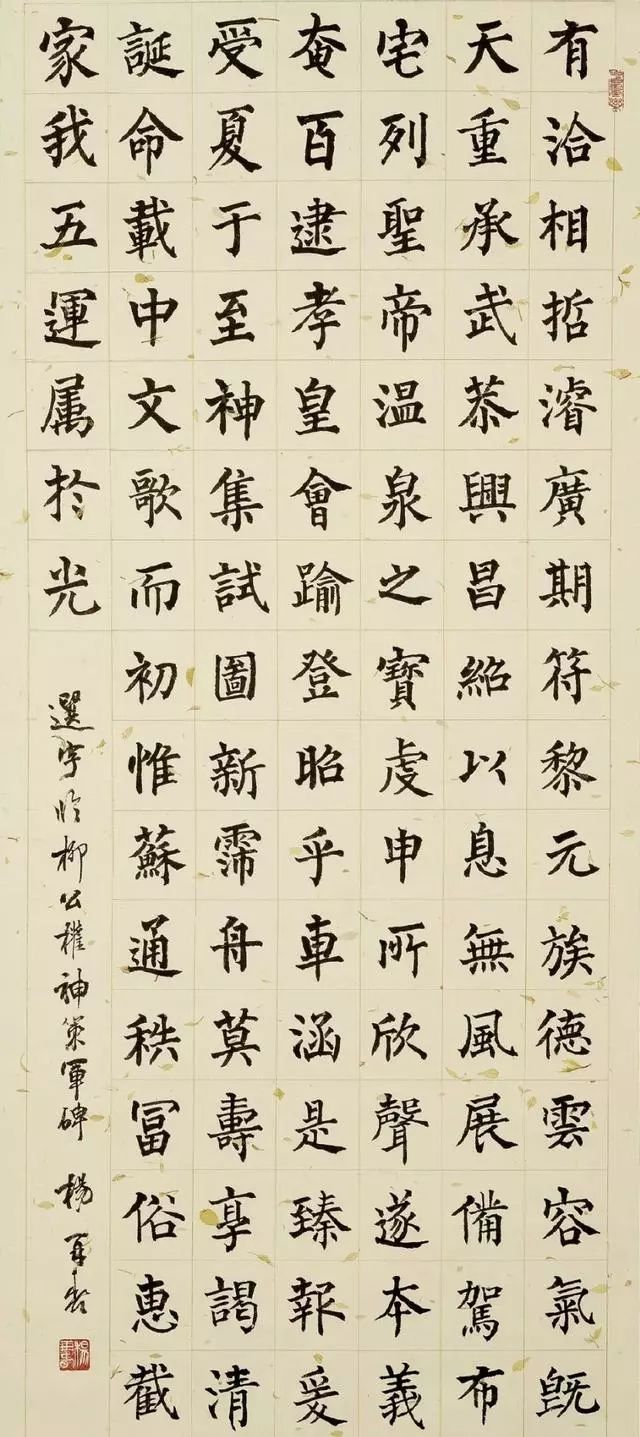 有洽相哲濬廣期符黎元族德雲容氣既
天重承武恭興昌紹以息無風展備駕布
宅列聖帝温泉之寶虔申所欣聲遂本義
奄百逮孝皇會踰登昭乎車涵是臻報爰
受夏于至神集試圖新霈舟莫壽享謁清
誕命載中文歌而初惟蘇通秩冨俗惠截
家我五運属於光
選字临柳公權神策軍碑 楊再春